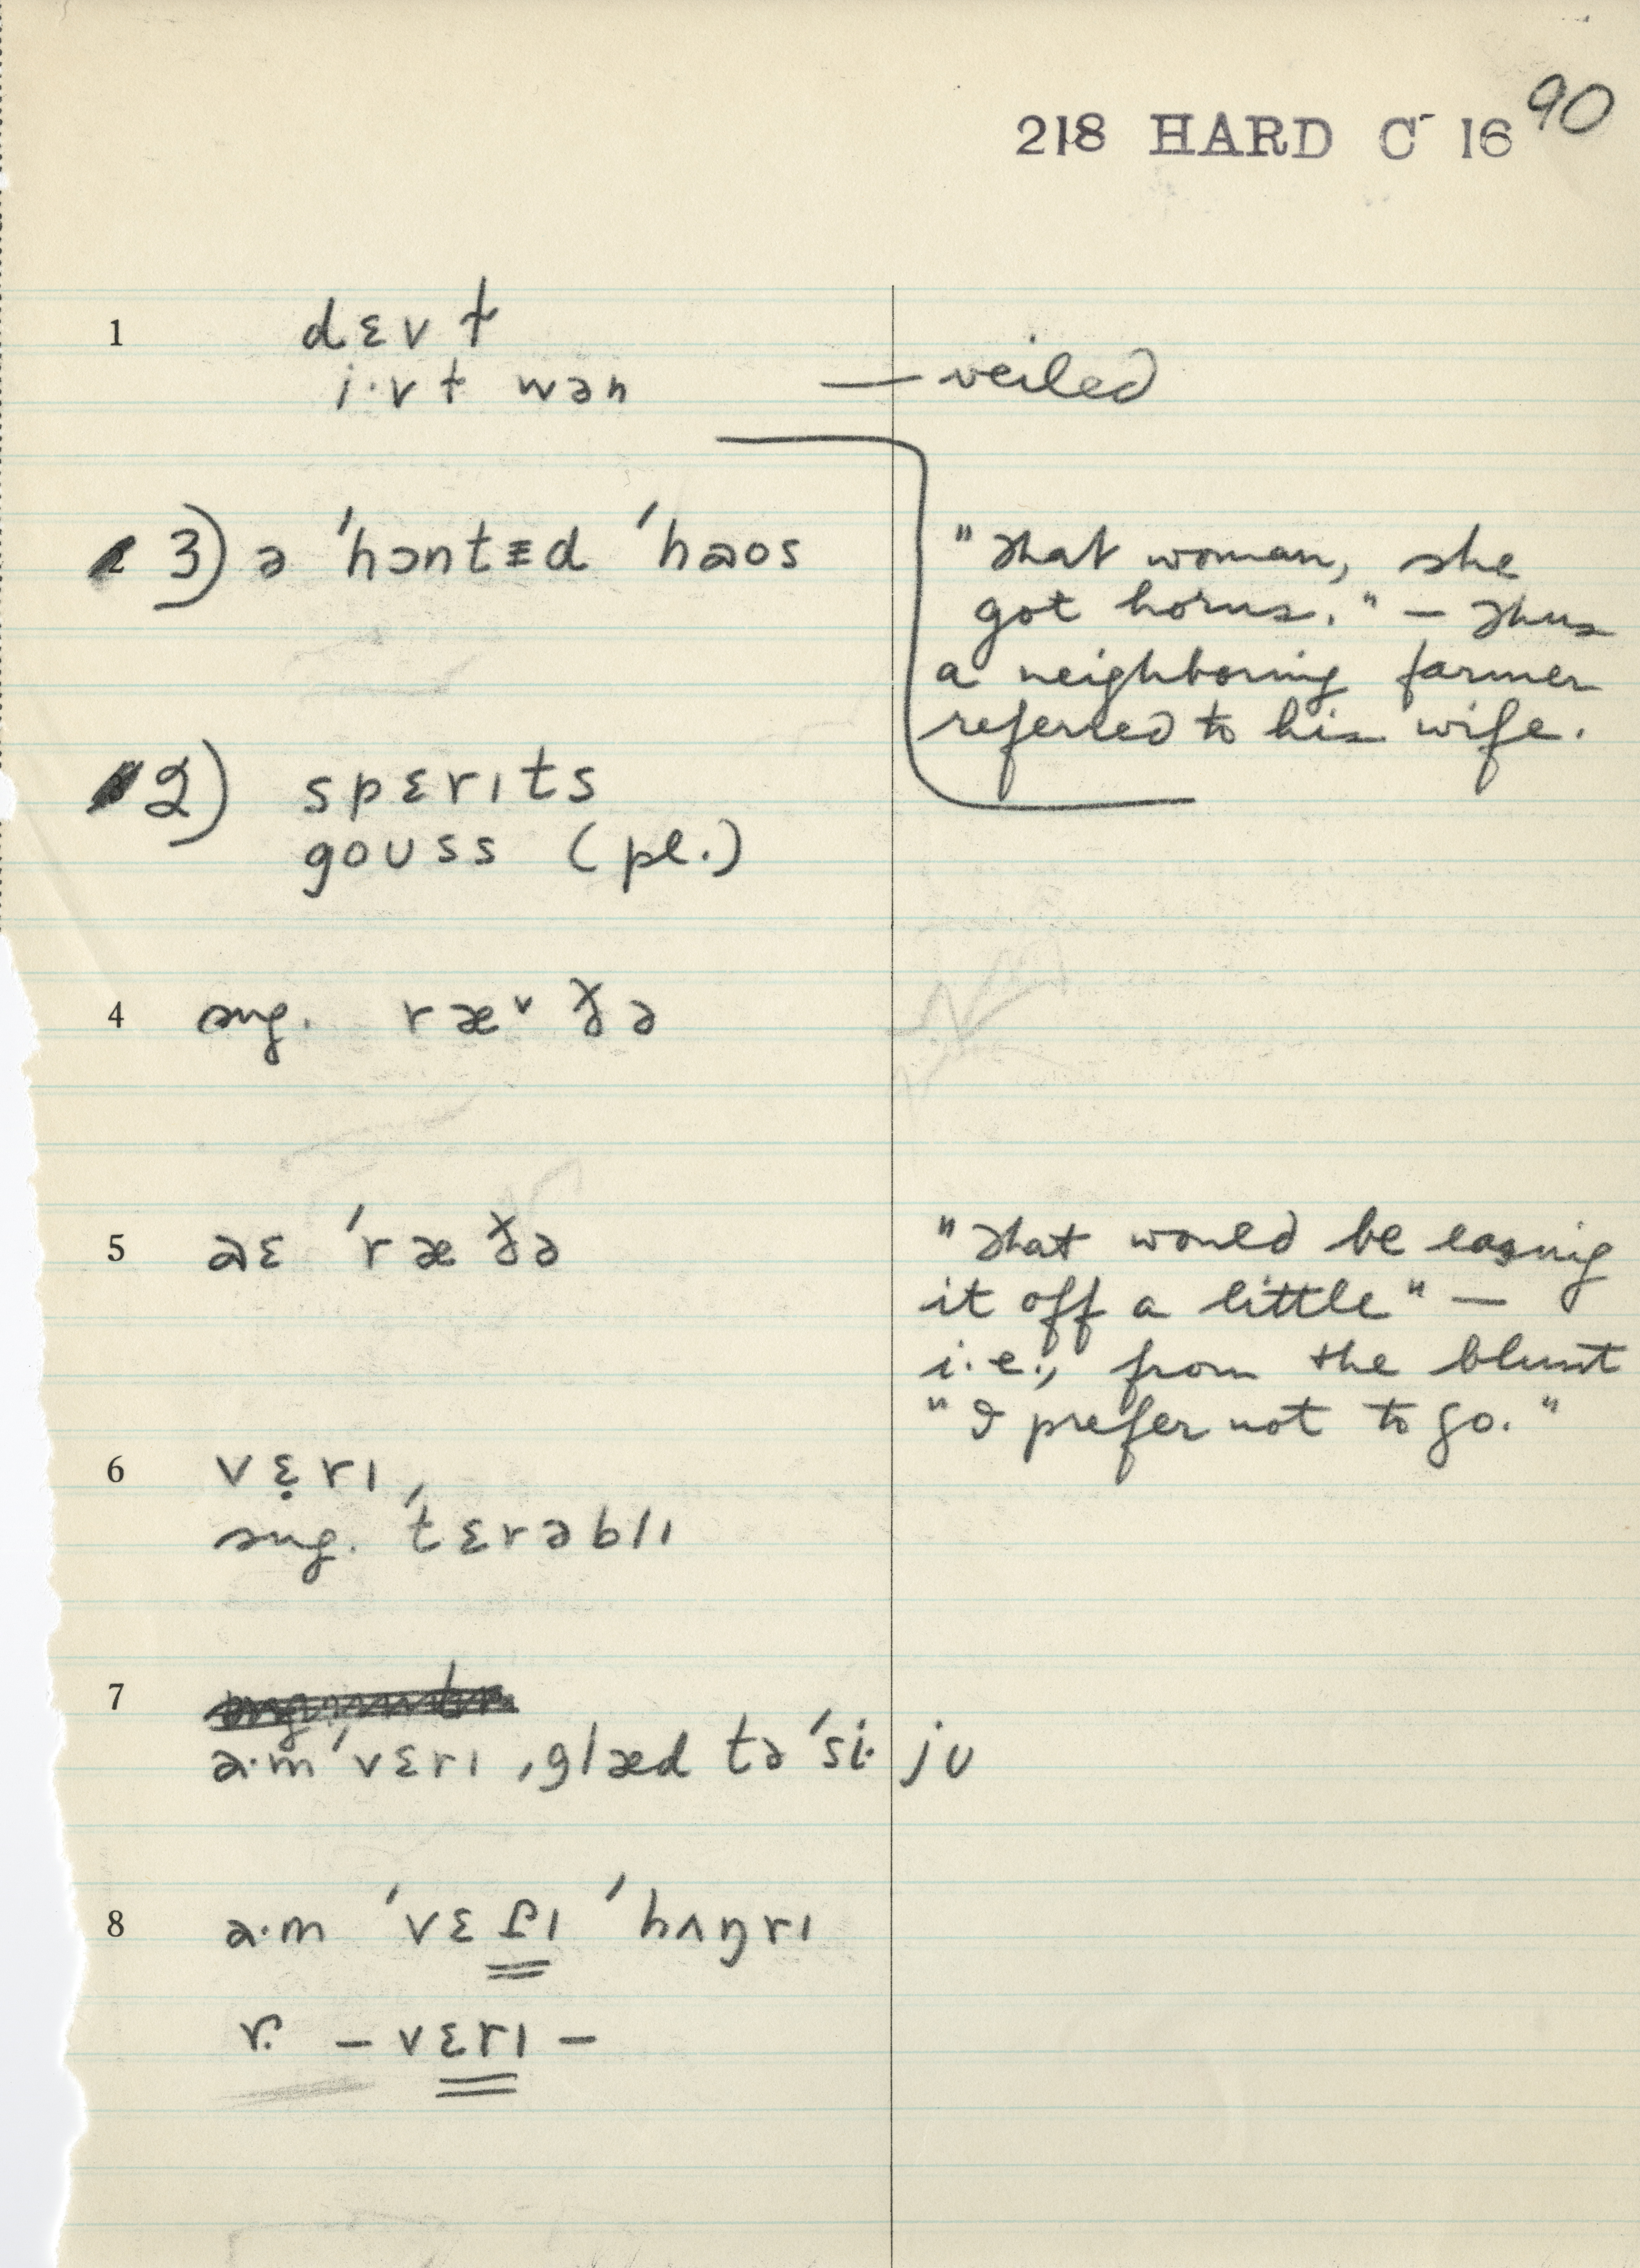 90
218 HARD C⁻ 16
1 dɛvɫ
i·vɫ wən — veiled
3) ə 'hɔntᵻd 'haos
"That woman, she
got horns." — Thus
a neighboring farmer
referred to his wife.
2) spɛrɪts
goʊss (pl.)
4 sug. ræᵛðə
5 aɛ 'ræðə
"That would be easing
it off a little" —
i.e., from the blunt
"I prefer not to go."
6 vɛ̣rɪ,
sug. 'tɛrəblɪ
7
a·m 'vɛrɪ ˌglæd tə 'si· jʊ
8 a·m 'vɛɾɪ 'hʌŋrɪ
r. – vɛrɪ –